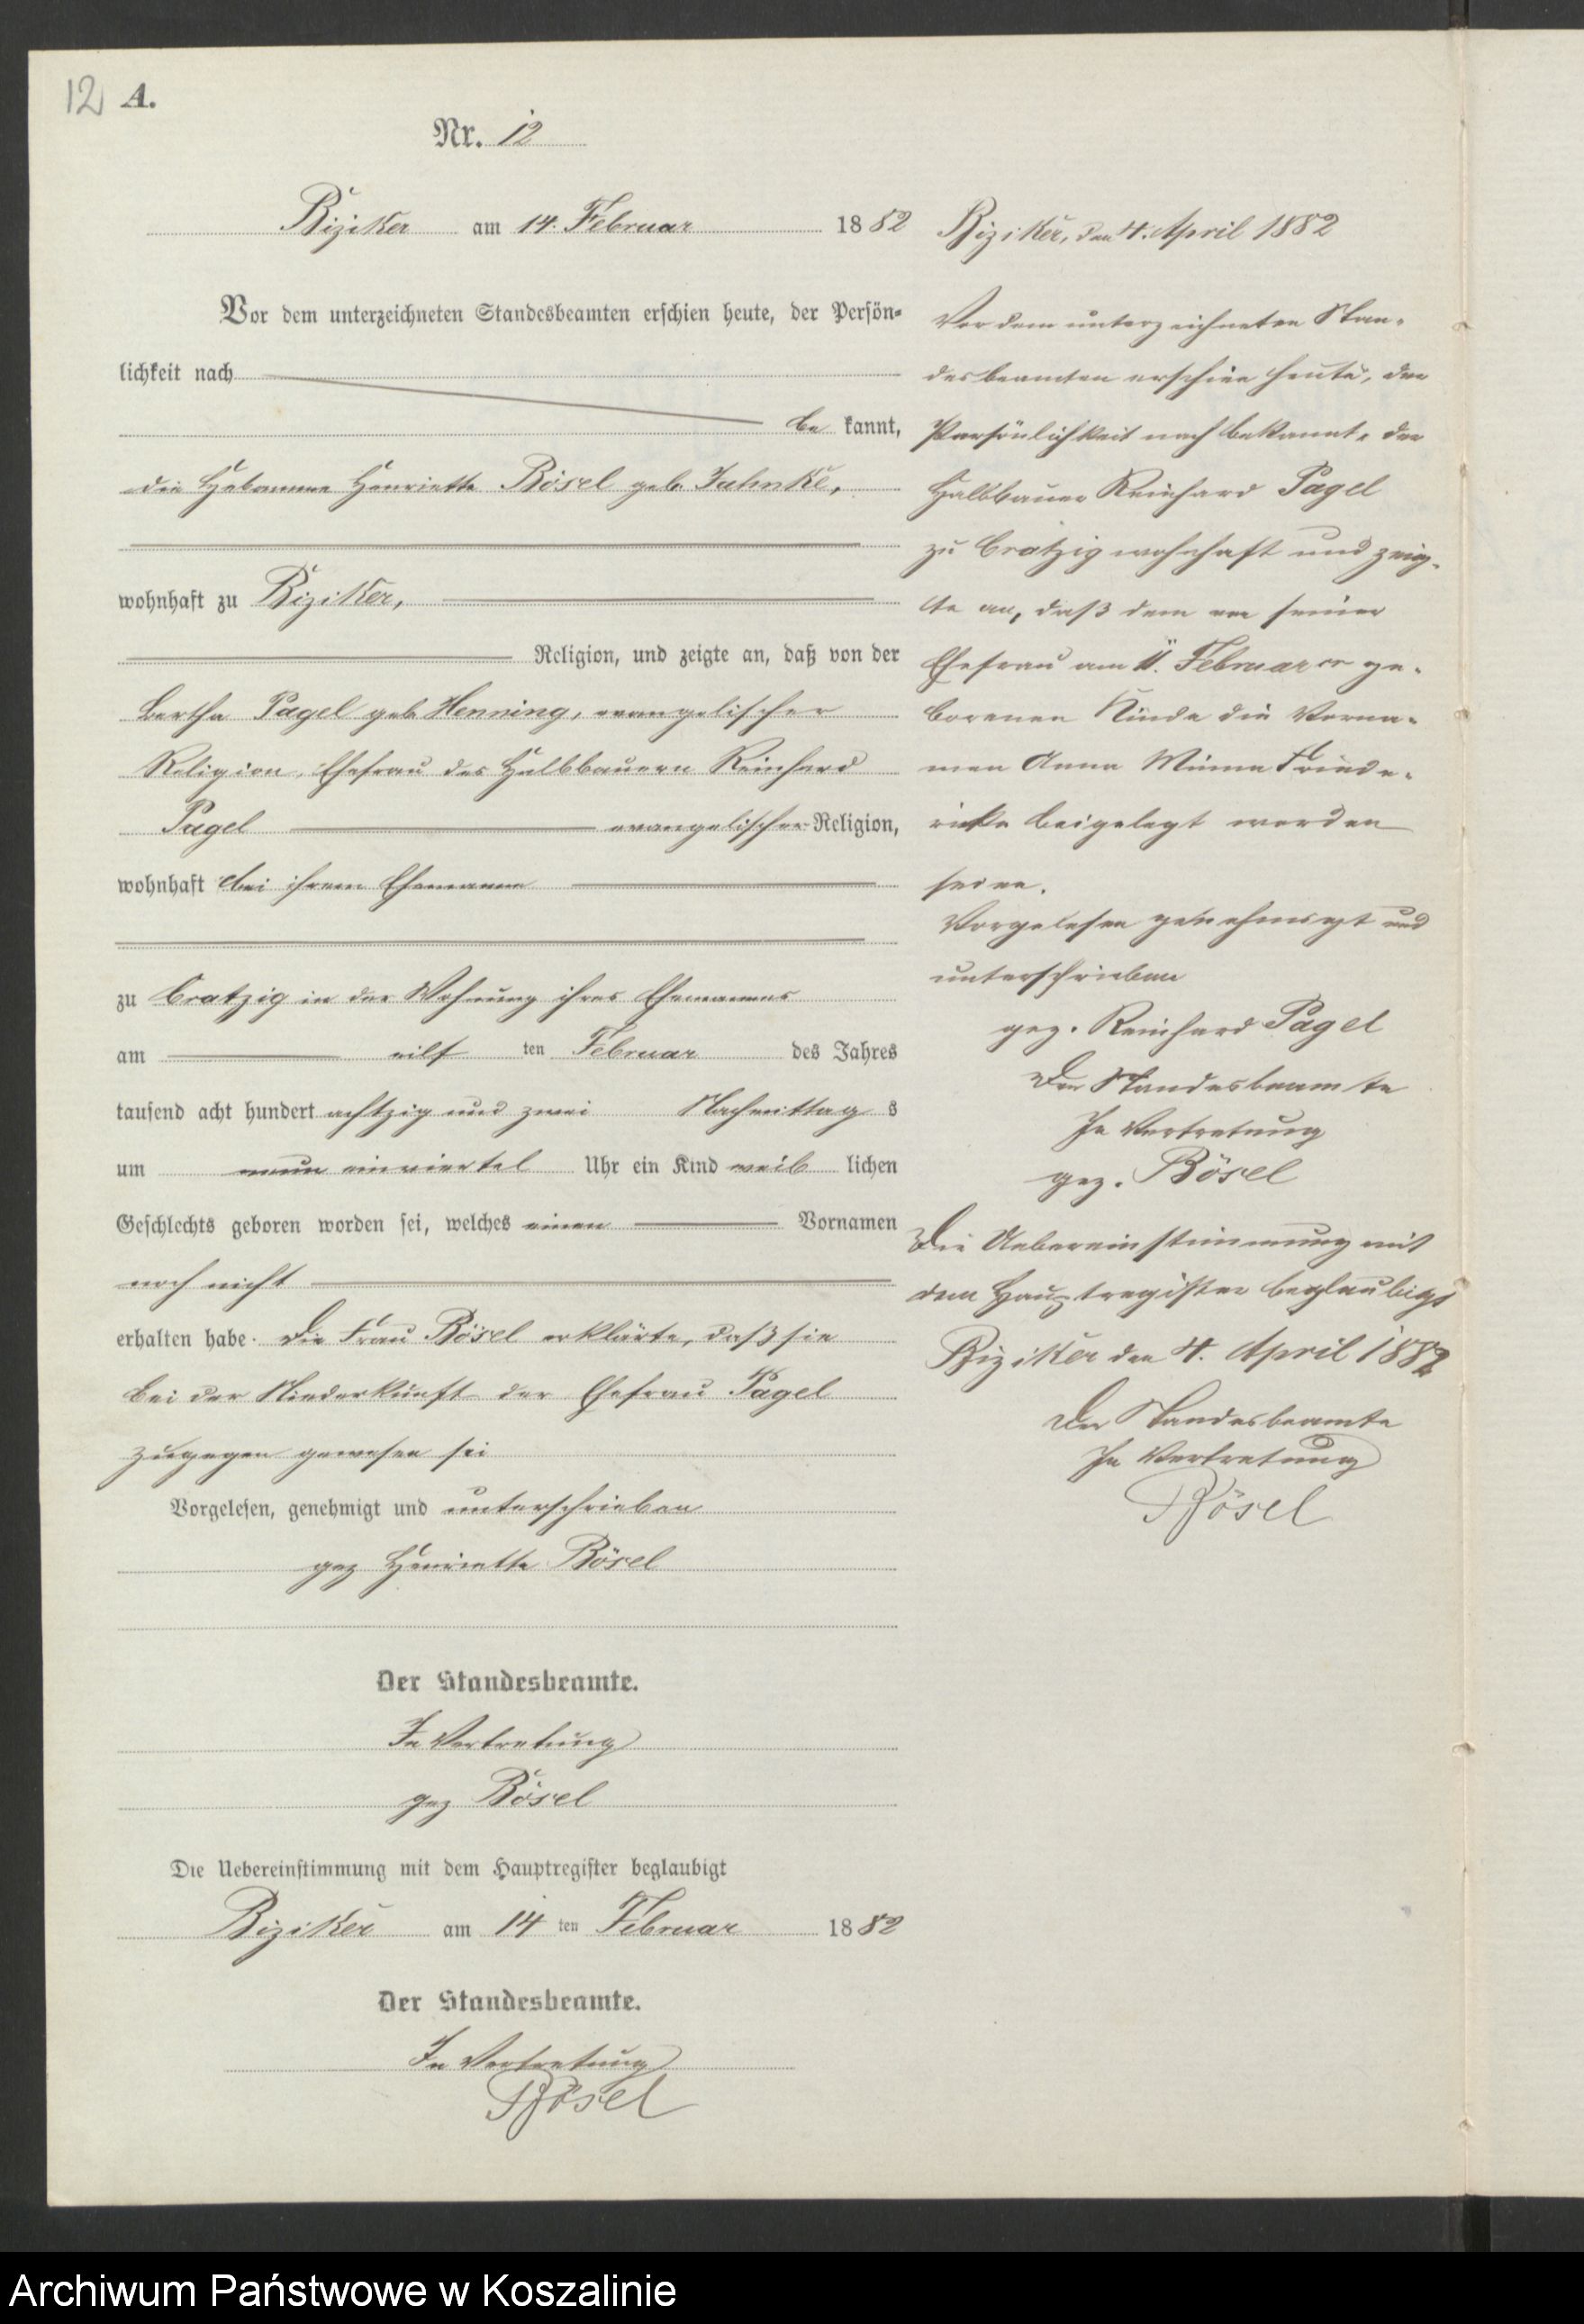 12 A.
Nr. 12
Biziker am 14. Februar 1882
Vor dem unterzeichneten Standesbeamten erschien heute, der Persön-
lichkeit nach
be kannt,
die Hebamme Henriette Bösel geb. Jahnke,
wohnhaft zu Biziker,
Religion, und zeigte an, daß von der
Bertha Pagel geb. Henning, evangelischer
Religion, Ehefrau des Halbbauern Reinhard
Pagel evangelischer Religion,
wohnhaft bei ihrem Ehemanne
zu Cratzig in der Wohnung ihres Ehemannes
am eilf ten Februar des Jahres
tausend acht hundert achtzig und zwei Nachmittag s
um neun einviertel Uhr ein Kind weib lichen
Geschlechts geboren worden sei, welches einen Vornamen
noch nicht
erhalten habe. Die Frau Bösel erklärte, daß sie
bei der Niederkunft der Ehefrau Pagel
zugegen gewesen sei
Vorgelesen, genehmigt und unterschrieben
gez Henriette Bösel
Der Standesbeamte.
In Vertretung
gez Bösel
Die Uebereinstimmung mit dem Hauptregister beglaubigt
Biziker am 14 ten Februar 1882
Der Standesbeamte.
In Vertretung
Bösel
Biziker, den 4. April 1882
Vor dem unterzeichneten Stan-
desbeamten erschien heute, der
Persönlichkeit nach bekannt, der
Halbbauer Reinhard Pagel
zu Cratzig wohnhaft und zeig-
te an, daß dem von seiner
Ehefrau am 11. Februar cr ge-
borenen Kinde die Vorna-
men Anna Minna Friede-
rieke beigelegt worden
seien.
Vorgelesen genehmigt und
unterschrieben
gez. Reinhard Pagel
Der Standesbeamte
In Vertretung
gez. Bösel
Die Uebereinstimmung mit
dem Hauptregister beglaubigt
Biziker den 4. April 1882
Der Standesbeamte
In Vertretung
Bösel
Archiwum Państwowe w Koszalinie